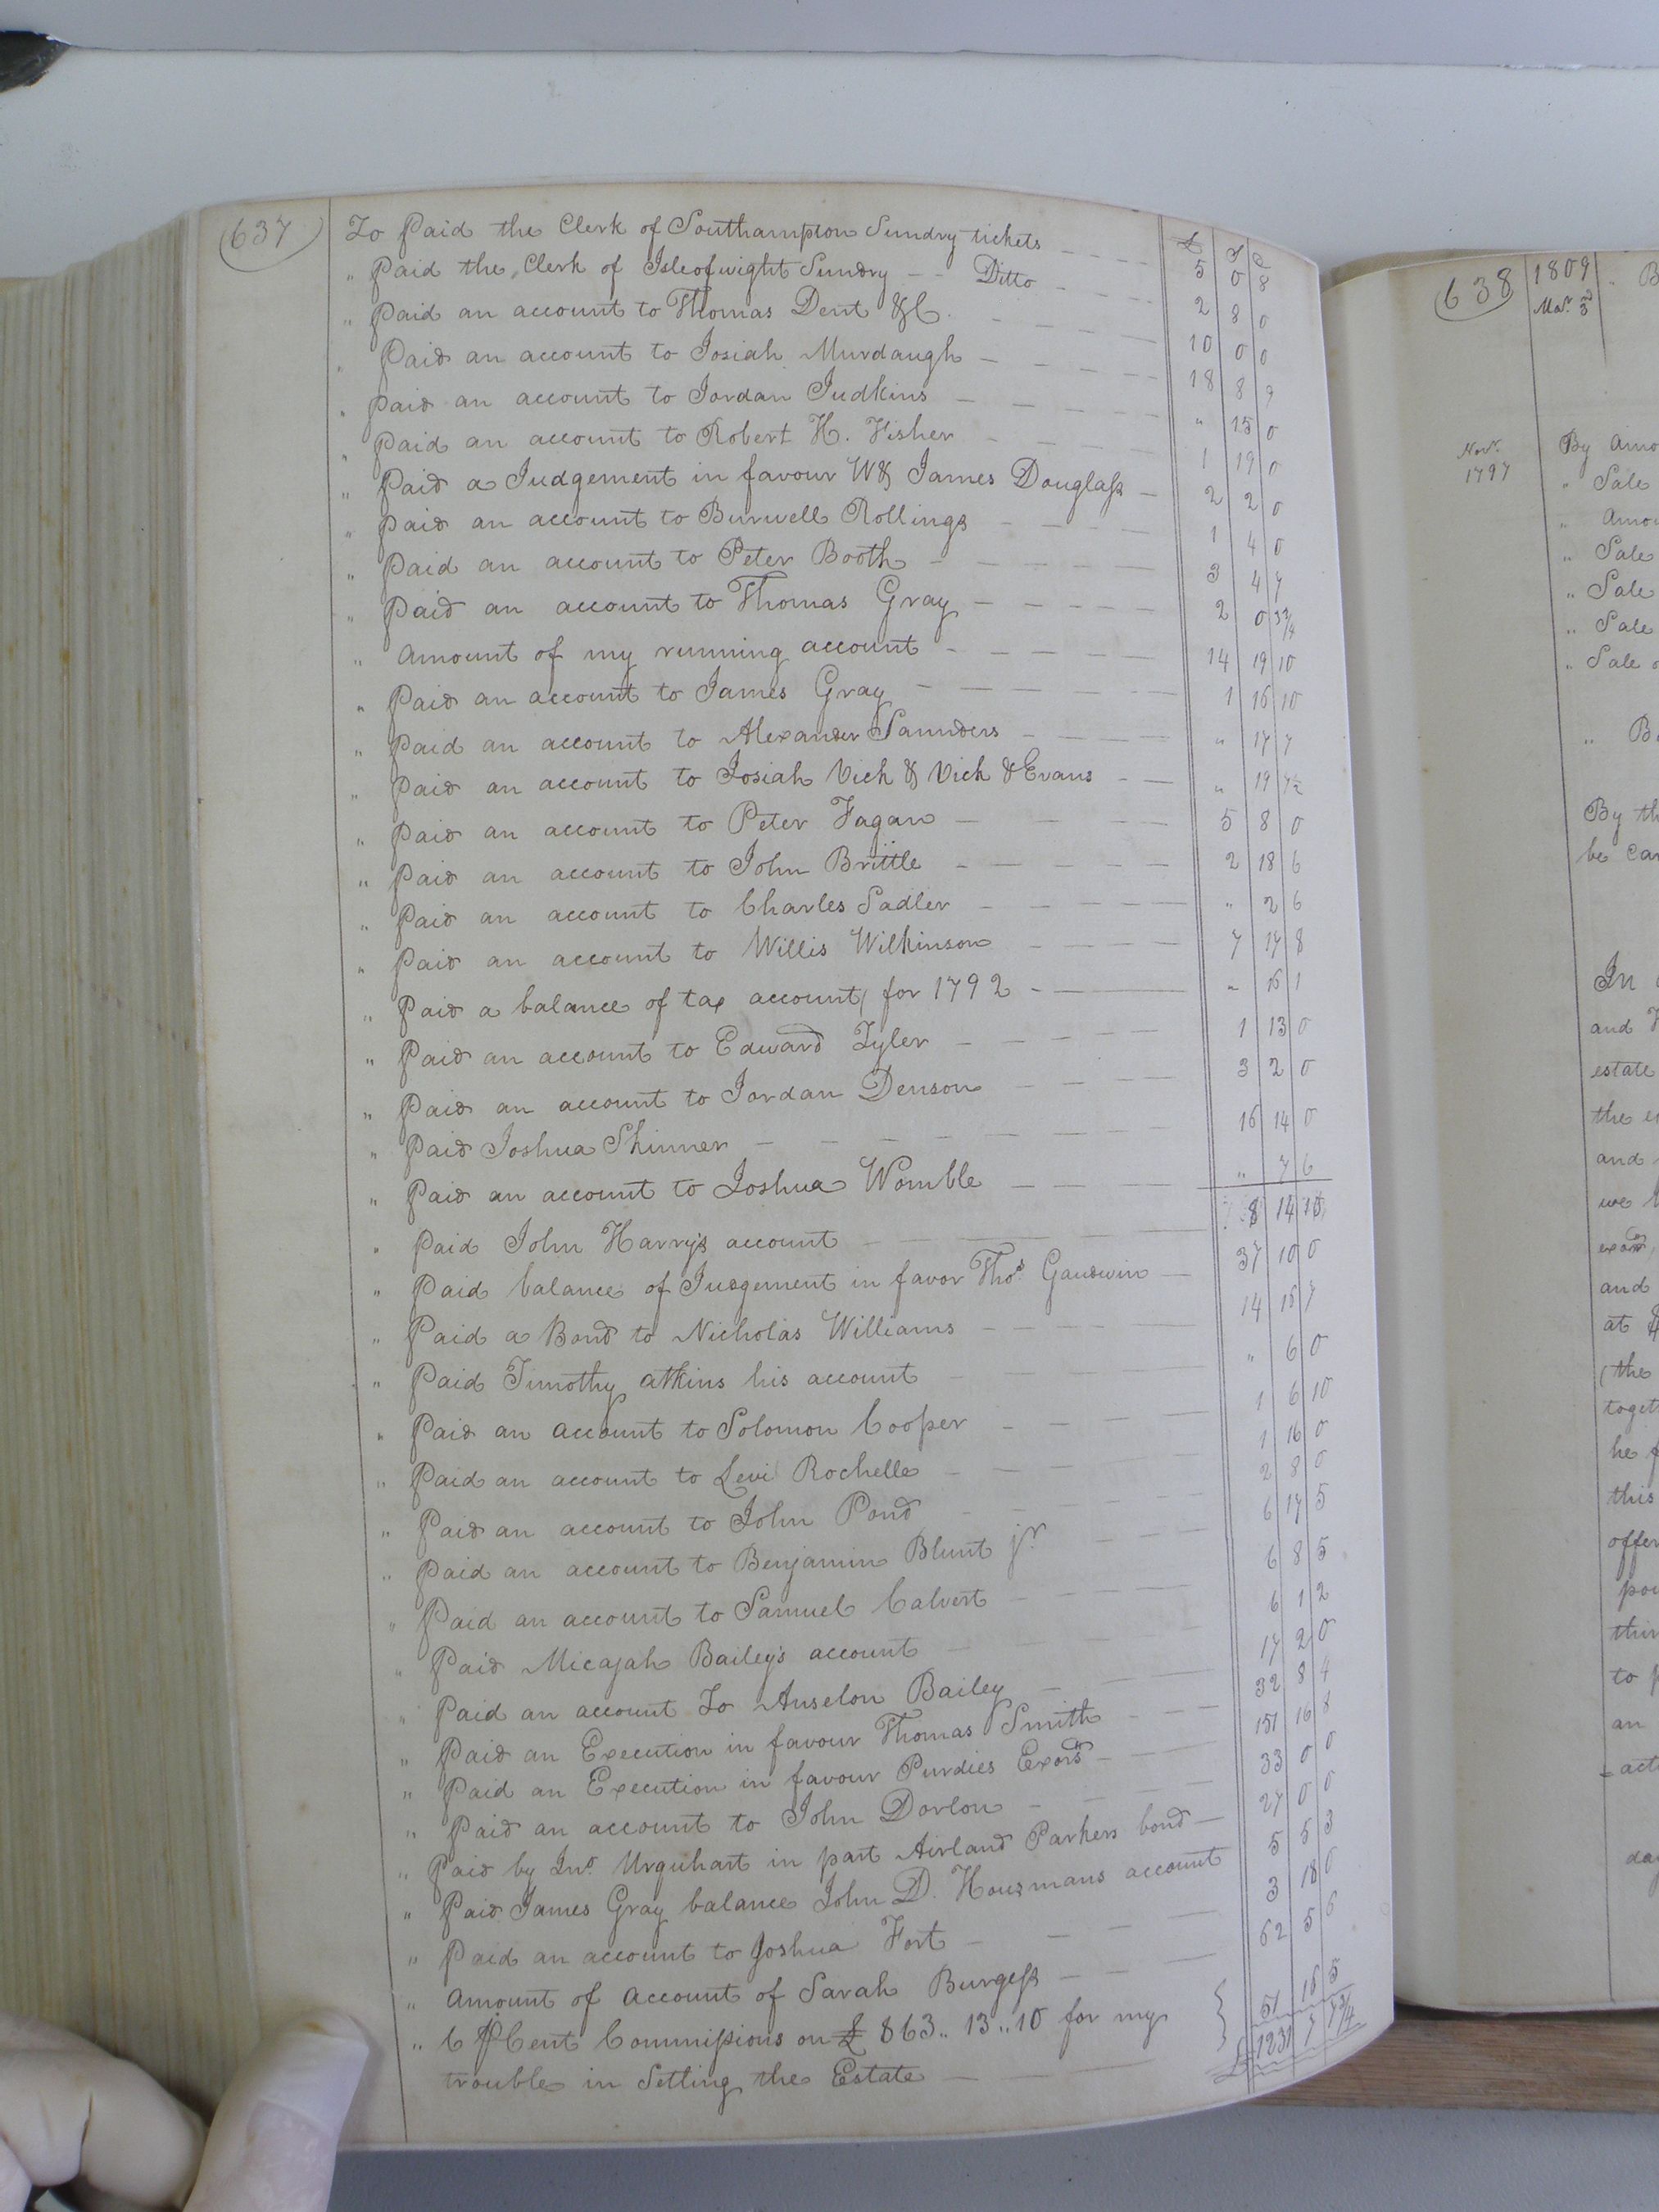 637
£ S D
To Paid the Clerk of Southampton Sundry tickets 5 0 8
" Paid the Clerk of Isle of wight Sundry Ditto 2 8 0
" Paid an account to Thomas Dent & C 10 0 0
" Paid an account to Josiah Murdaugh 18 8 9
" Paid an account to Jordan Judkins " 15 0
" Paid an account to Robert H. Fisher 1 19 0
" Paid a Judgement in favour W & James Douglass 2 2 0
" Paid an account to Burwell Rollings 1 4 0
" Paid an account to Peter Booth 3 4 7
" Paid an account to Thomas Gray 2 0 3 3/4
" Amount of my running account 14 19 10
" Paid an account to James Gray 1 16 10
" Paid an account to Alexander Saunders " 17 7
" Paid an account to Josiah Vick & Vick & Evans " 19 7½
" Paid an account to Peter Fagan 5 8 0
" Paid an account to John Brittle 2 18 6
" Paid an account to Charles Sadler " 2 6
" Paid an account to Willis Wilkinson 7 17 8
" Paid a balance of tax account for 1792 " 16 1
" Paid an account to Edward Tyler 1 13 0
" Paid an account to Jordan Denson 3 2 0
" Paid Joshua Skinner 16 14 0
" Paid an account to Joshua Womble " 7 6
" Paid John Harry's account 8 14
" Paid balance of Judgement in favor Thos. Gaudwin 37 10 0
" Paid a Bond to Nicholas Williams 14 7
" Paid Timothy Atkins his account " 6 0
" Paid an account to Solomon Cooper 1 6 10
" Paid an account to Levi Rochelle 1 16 0
" Paid an account to John Pond 2 8 0
" Paid an account to Benjamin Blunt jr. 6 17 5
" Paid an account to Samuel Calvert 6 8 5
" Paid Micajah Bailey's account 6 1 2
" Paid an account To Anselon Bailey 17 2 0
" Paid an Execution in favour Thomas Smith 32 8 4
" Paid an Execution in favour Purdies Exors 151 16 8
" Paid an account to John Dorlon 33 0 0
" Paid by Jno. Urquhart in part Airland Parkers bond 27 0 0
" Paid James Gray balance John D. Housmans account 5 5 3
" Paid an account to Joshua Fort 3 18 0
" Amount of Account of Sarah Burgess 62 5 6
" 6 P Cent Commissions on £ 863 .. 13 .. 10 for my
trouble in Setling the Estate 51 16 5
£ 1231 7 7 3/4
638 1809 "
Mar. 3d
Novr.
1797
By Amo
" Sale
" Amou
" Sale
" Sale
" Sale
" Sale
"
By th
be
In
and
estate
the
and
we
exors
and
at
(the
toget
he
this
offer
pou
thir
to
an
day